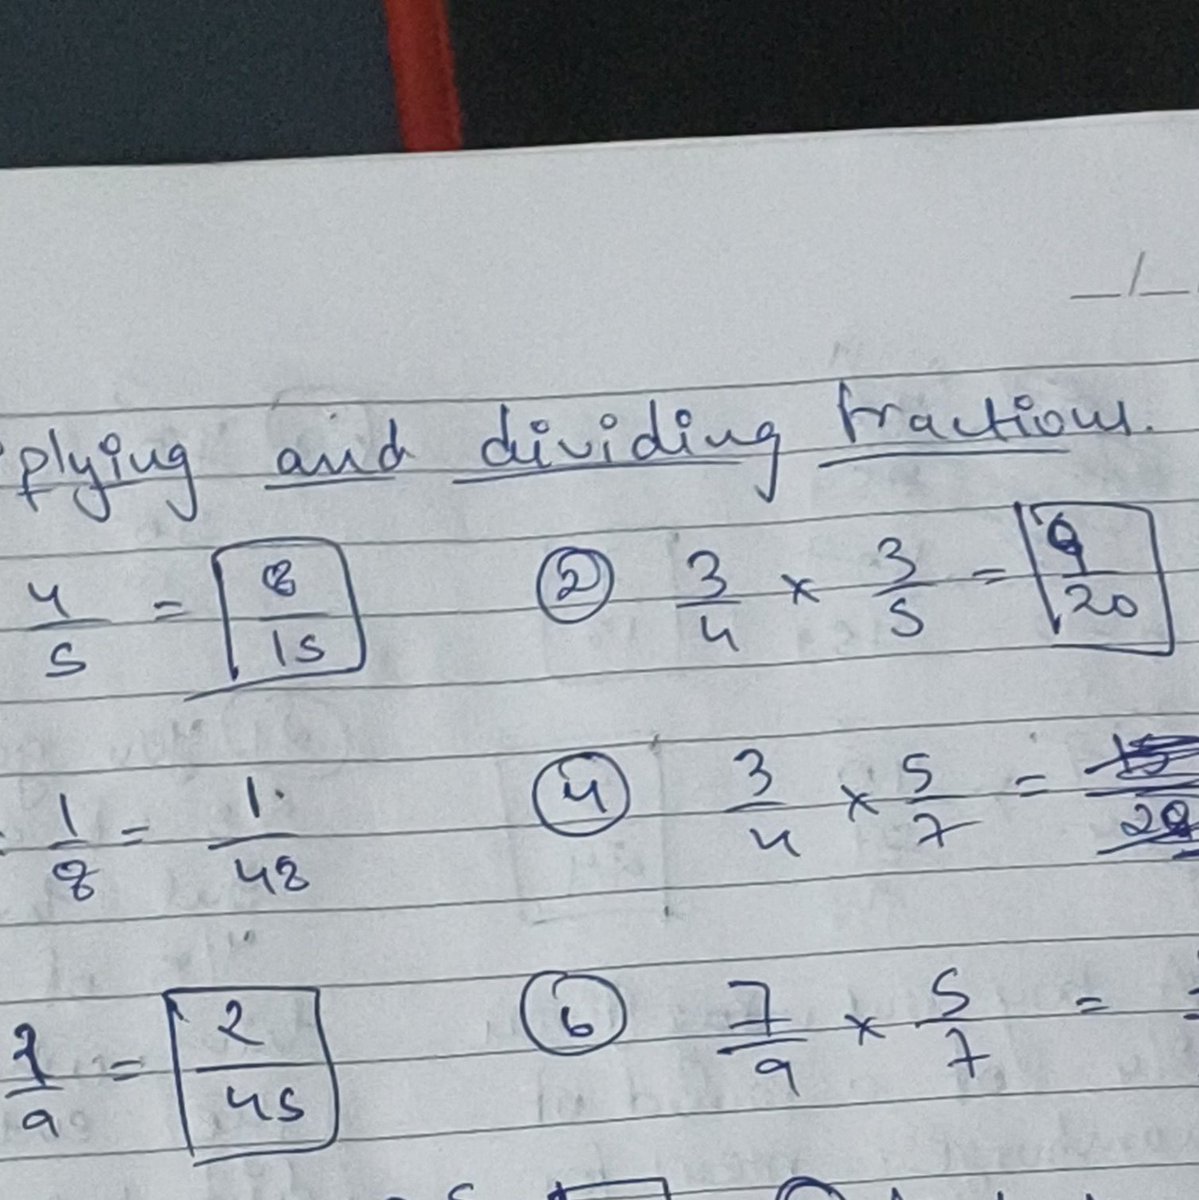 __/__
plying and dividing fractions.
4/5 = 8/15 ② 3/4 × 3/5 = 9/20
1/8 = 1/48 ④ 3/4 × 5/7 =
/9 = 2/45 ⑥ 7/9 × 5/7 =